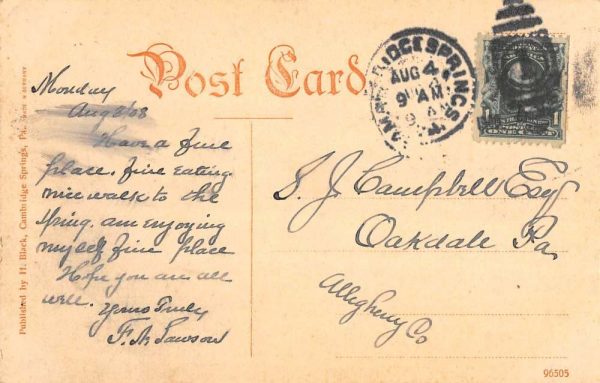 Post Card.
Monday
Aug 3/08
Have a fine
place. fine eating.
nice walk to the
spring. am enjoying
myself fine place
Hope you are all
well. Yours Truly
Lawson
S. J. Campbell Esq
Oakdale Pa,
Allegheny Co
CAMBRIDGE SPRINGS
AUG 4
9 AM
PA.
1
ONE CENT
Published by H. Black, Cambridge Springs, Pa.
96505